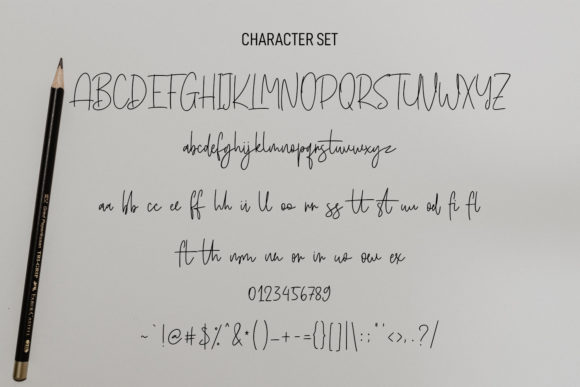 CHARACTER SET
ABCDEFGHIJKLMNOPQRSTUVWXYZ
abcdefghijklmnopqrstuvwxyz
aa bb cc ee ff hh ii ll oo rr ss tt st uu od fi fl
ft th nm nn on in uo ow ex
0123456789
~`!@#$%^&*()_+-={}[]|\:;"'<>,.?/